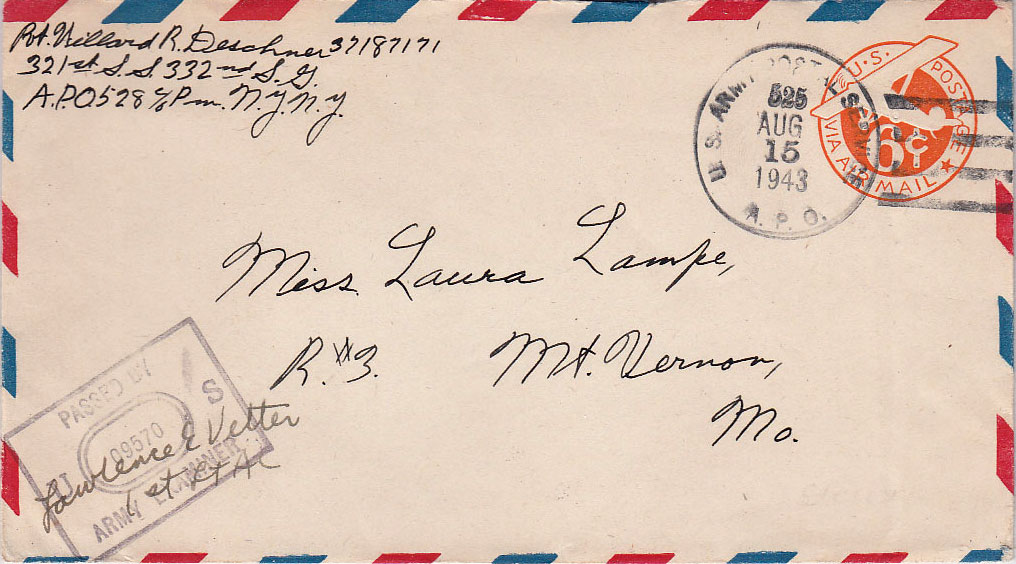 Pvt. Willard R. Deschner 37187171
321st S.S. 332nd S.G.
A.P.O 528 c/o Pm. N.Y. N.Y.
U.S. ARMY POSTAL SERVICE
525
AUG
15
1943
A.P.O.
U.S. POSTAGE
6¢
VIA AIR MAIL
Miss Laura Lampe,
R. #3. Mt. Vernon,
Mo.
PASSED BY
S
09570
ARMY EXAMINER
Lawrence E Vetter
1st Lt AC